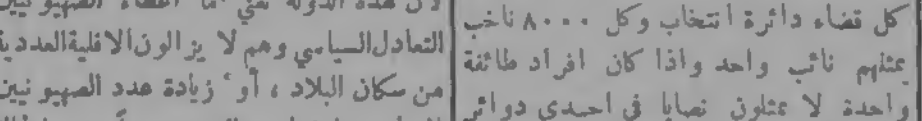 كل قضاء دائرة انتخاب وكل ٨٠٠٠ ناخب
يمثلهم نائب واحد واذا كان افراد طائفة
واحدة لا يمثلون نصابا في احدى دوائر
لان هذه الدولة تعني
الصهيونيين
التعادل السياسي وهم لا يزالون الاقلية العددية
من سكان البلاد ، أو زيادة عدد الصهيونيين